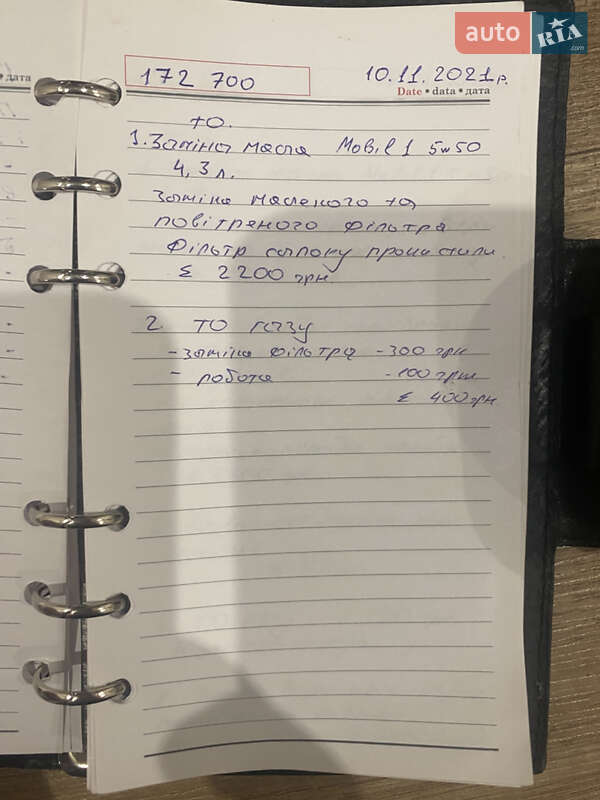 auto RIA .com
дата
172 700
10.11.2021р.
Date • data • дата
ТО.
1. Заміна масла Mobil 1 5w50
4,3л.
Заміна масленого та
повітряного фільтра
Фільтр салону прочистили
Σ 2200 грн.
2. ТО газу
- заміна фільтра - 300 грн
- робота - 100 грн
Σ 400 грн